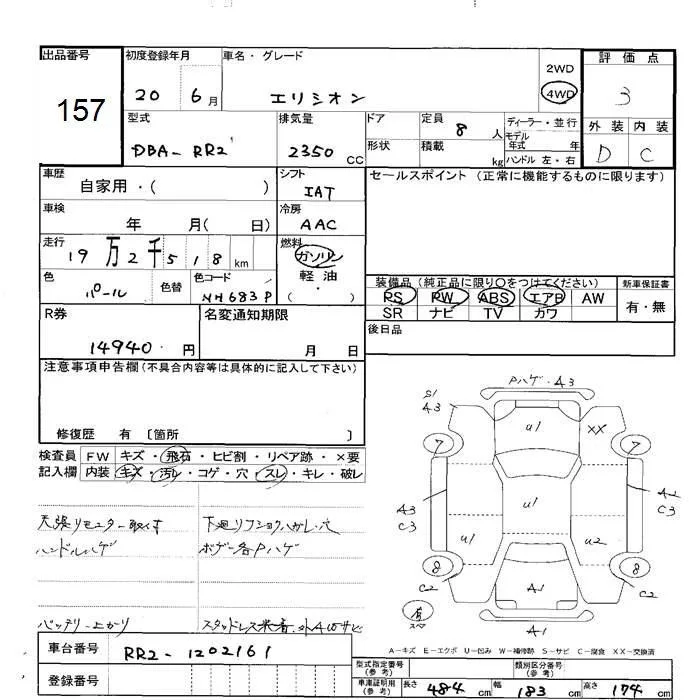 出品番号
157
初度登録年月
20 6月
車名・グレード
エリシオン
2WD
4WD
評価点
3
外装 内装
D C
型式
DBA-RR2
排気量
2350 CC
ドア
形状
定員
8 人
積載
kg
ディーラー・並行
モデル年式 年
ハンドル 左・右
車歴
自家用・( )
シフト
IAT
セールスポイント (正常に機能するものに限ります)
車検
年 月( 日)
冷房
AAC
走行
19万2千518km
燃料
ガソリン
軽油
・
( )
色
パール
色替
色コード
NH683P
装備品(純正品に限り○をつけてください)
PS PW ABS エアB AW
SR ナビ TV カワ
新車保証書
有・無
R券
14940 円
名変通知期限
月 日
後日品
注意事項申告欄(不具合内容等は具体的に記入して下さい)
修復歴 有 〔箇所 〕
検査員記入欄
FW キズ・飛石・ヒビ割・リペア跡・×要
内装 キズ・汚れ・コゲ・穴・スレ・キレ・破レ
天張りモニター取付す
ハンドルハゲ
バッテリー上がり
下廻りフショクハガレ・穴
ボデー各Pハゲ
Pハゲ・A3
S1
A3
U1
XX
7
7
A3
C3
A2
C3
U1
U1
U2
8
8
C2
C2
A1
A1
有
スペア
A-キズ E-エクボ U-凹み W-補修跡 S-サビ C-腐食 XX-交換済
車台番号
RR2-1202161
登録番号
型式指定番号
(参考)
類別区分番号
(参考)
車庫証明用
(参考)
長さ 484 cm
幅 183 cm
高さ 174 cm